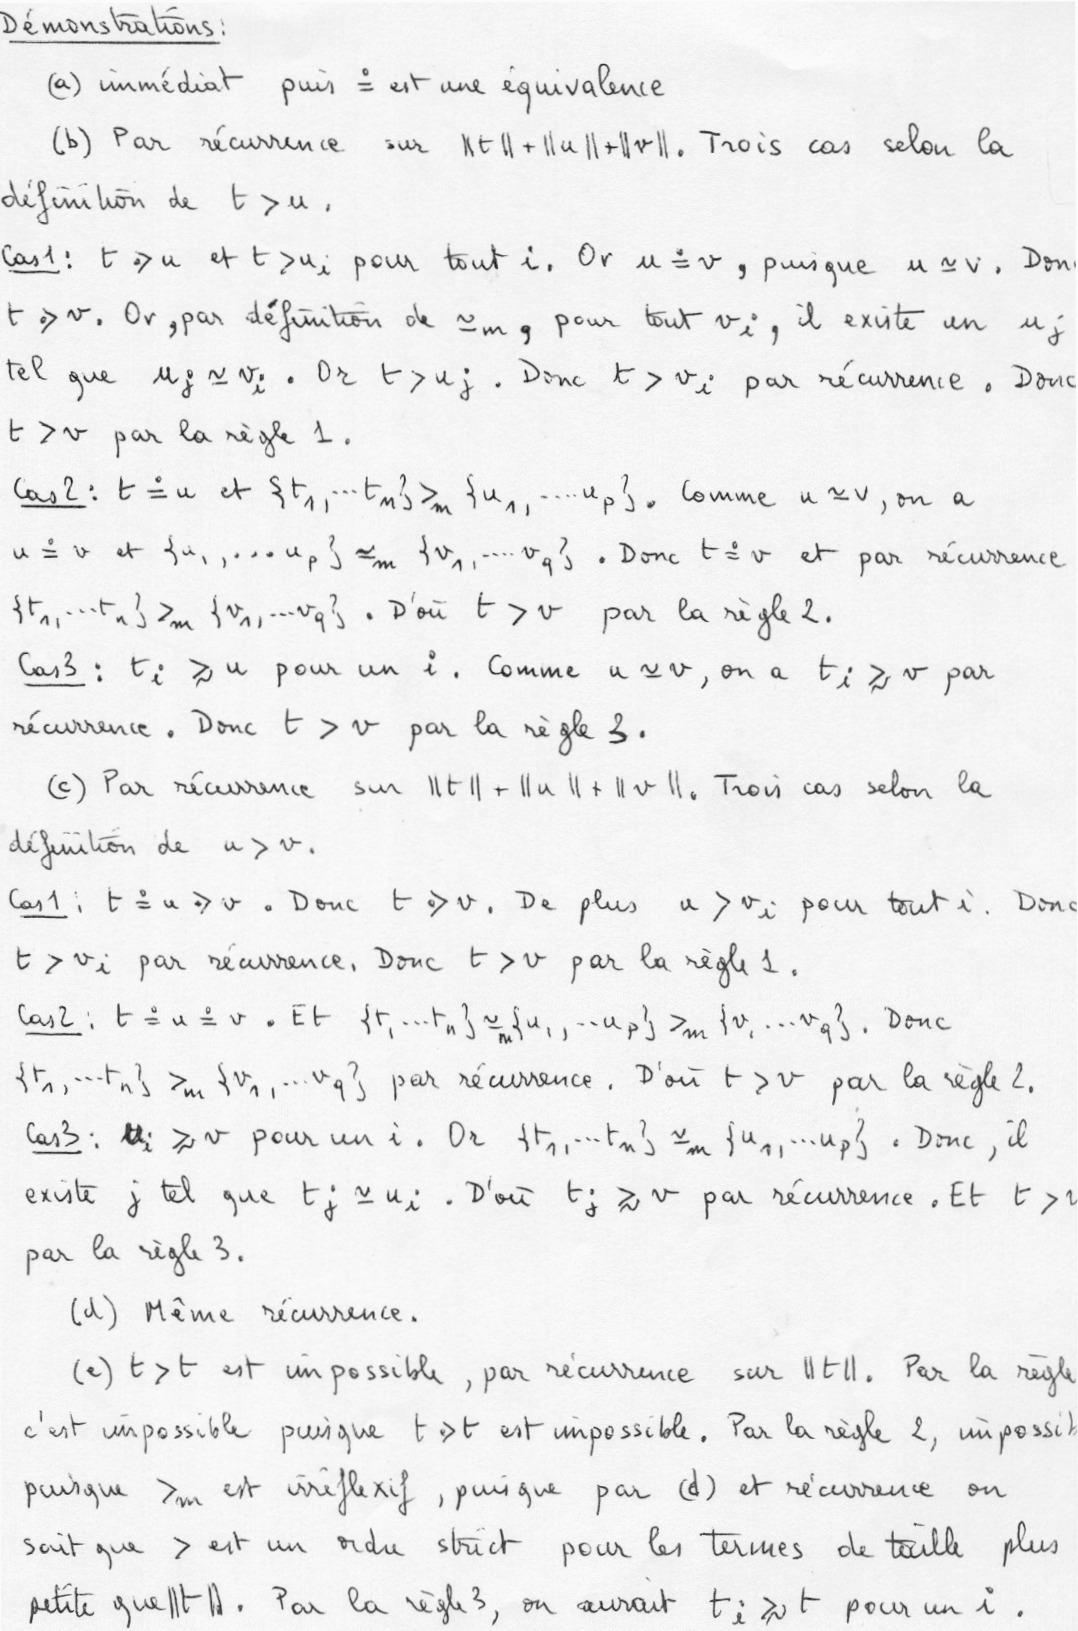 Démonstrations:
(a) immédiat puis ≗ est une équivalence
(b) Par récurrence sur ‖t‖+‖u‖+‖v‖. Trois cas selon la
définition de t > u.
Cas1: t ⋗ u et t > uᵢ pour tout i. Or u ≗ v, puisque u ≃ v. Don
t ⋗ v. Or, par définition de ≃ₘ, pour tout vᵢ, il existe un uⱼ
tel que uⱼ ≃ vᵢ. Or t > uⱼ. Donc t > vᵢ par récurrence. Donc
t > v par la règle 1.
Cas2: t ≗ u et {t₁,...tₙ} >ₘ {u₁,....uₚ}. Comme u ≃ v, on a
u ≗ v et {u₁,...uₚ} ≃ₘ {v₁,....v_q}. Donc t ≗ v et par récurrence
{t₁,...tₙ} >ₘ {v₁,...v_q}. D'où t > v par la règle 2.
Cas3: tᵢ ⪎ u pour un i. Comme u ≃ v, on a tᵢ ⪎ v par
récurrence. Donc t > v par la règle 3.
(c) Par récurrence sur ‖t‖+‖u‖+‖v‖. Trois cas selon la
définition de u > v.
Cas1: t ≗ u ⋗ v. Donc t ⋗ v. De plus u > vᵢ pour tout i. Donc
t > vᵢ par récurrence. Donc t > v par la règle 1.
Cas2: t ≗ u ≗ v. Et {t₁...tₙ} ≃ₘ {u₁,...uₚ} >ₘ {v₁...v_q}. Donc
{t₁,...tₙ} >ₘ {v₁,...v_q} par récurrence. D'où t > v par la règle 2.
Cas3: uᵢ ⪎ v pour un i. Or {t₁,...tₙ} ≃ₘ {u₁,...uₚ}. Donc, il
existe j tel que tⱼ ≃ uᵢ. D'où tⱼ ⪎ v par récurrence. Et t > v
par la règle 3.
(d) Même récurrence.
(e) t > t est impossible, par récurrence sur ‖t‖. Par la règle
c'est impossible puisque t ⋗ t est impossible. Par la règle 2, impossib
puisque >ₘ est irréflexif, puisque par (d) et récurrence on
sait que > est un ordre strict pour les termes de taille plus
petite que ‖t‖. Par la règle 3, on aurait tᵢ ⪎ t pour un i.